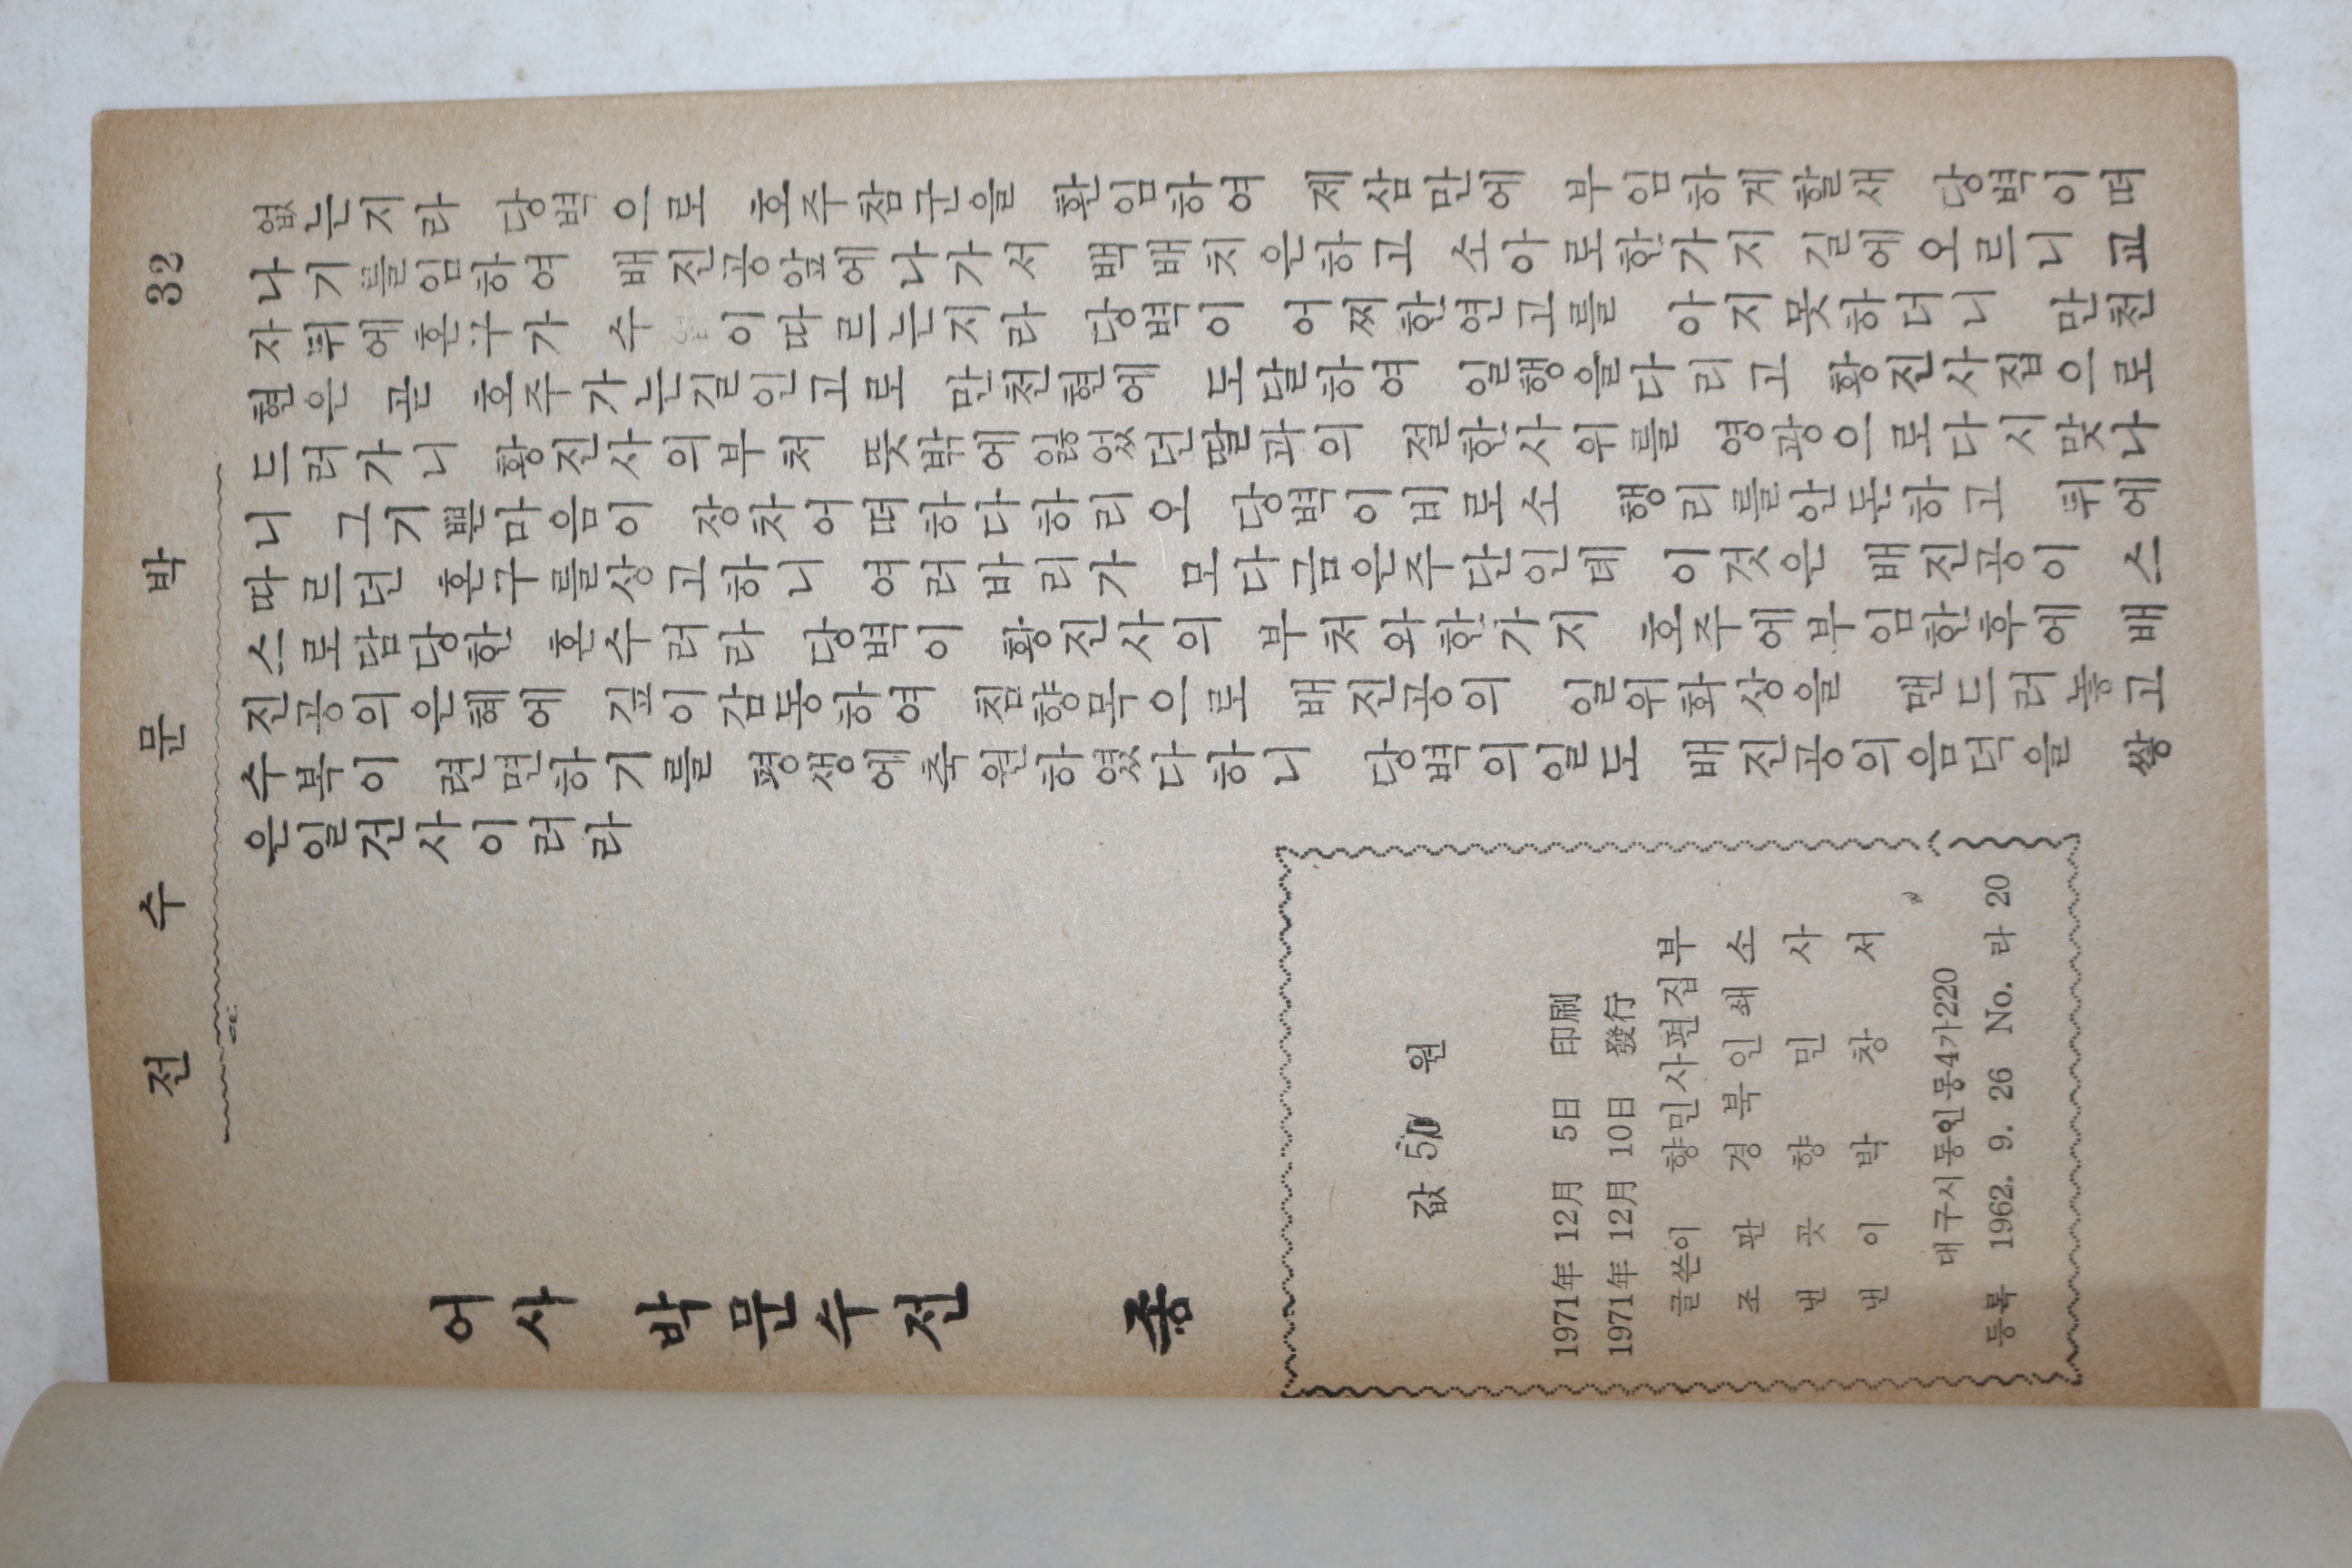 32
박문수전
없는지라 당벽으로 호주참군을 환임하여 제삼만에 부임하게할새 당벽이떠
나기를임하여 배진공앞에나가서 백배치은하고 소아로한가지 길에오르니 교
자뒤에혼구가 수 이따르는지라 당벽이 어찌한연고를 아지못하더니 만천
현은 곧 호주가는길인고로 만천현에 도달하여 일행을다리고 황진사집으로
드러가니 황진사의부처 뜻밖에잃었던딸과의 절한사위를 영광으로다시맞나
니 그기쁜마음이 장차어떠하다하리오 당벽이비로소 행리를안돈하고 뒤에
따르던 혼구를상고하니 여러바리가 모다금은주단인데 이것은 배진공이 스
스로담당한 혼수러라 당벽이 황진사의 부처와한가지 호주에부임한후에 배
진공의은혜에 깊이감동하여 침향목으로 배진공의 일위화상을 맨드러놓고
수복이 련면하기를 평생에축원하였다하니 당벽의일도 배진공의음덕을 쌓
은일건사이러라
어사 박문수전 종
값 50 원
1971年 12月 5日 印刷
1971年 12月 10日 發行
글쓴이 향민사편집부
조판 경북인쇄소
낸곳 향민사
낸이 박창서
대구시동인동4가220
등록 1962. 9. 26 No. 라 20